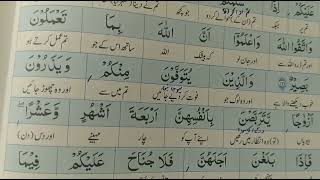 وَاتَّقُوا اللهَ وَاعْلَمُوْٓا اَنَّ اللهَ بِمَا تَعْمَلُوْنَ
اللہ سے اور تم جان لو کہ بیشک اللہ ساتھ اس کے جو تم عمل کرتے ہو
بَصِيْرٌ وَالَّذِيْنَ يُتَوَفَّوْنَ مِنْكُمْ وَيَذَرُوْنَ
اور وہ لوگ جو فوت کرلیے جائیں تم میں سے اور وہ چھوڑ جائیں
اَزْوَاجًا يَّتَرَبَّصْنَ بِاَنْفُسِهِنَّ اَرْبَعَةَ اَشْهُرٍ وَّعَشْرًا
بیویاں (تو) وہ انتظار میں رکھیں اپنے آپ کو چار مہینے اور دس (دن)
فَاِذَا بَلَغْنَ اَجَلَهُنَّ فَلَا جُنَاحَ عَلَيْكُمْ فِيْمَا